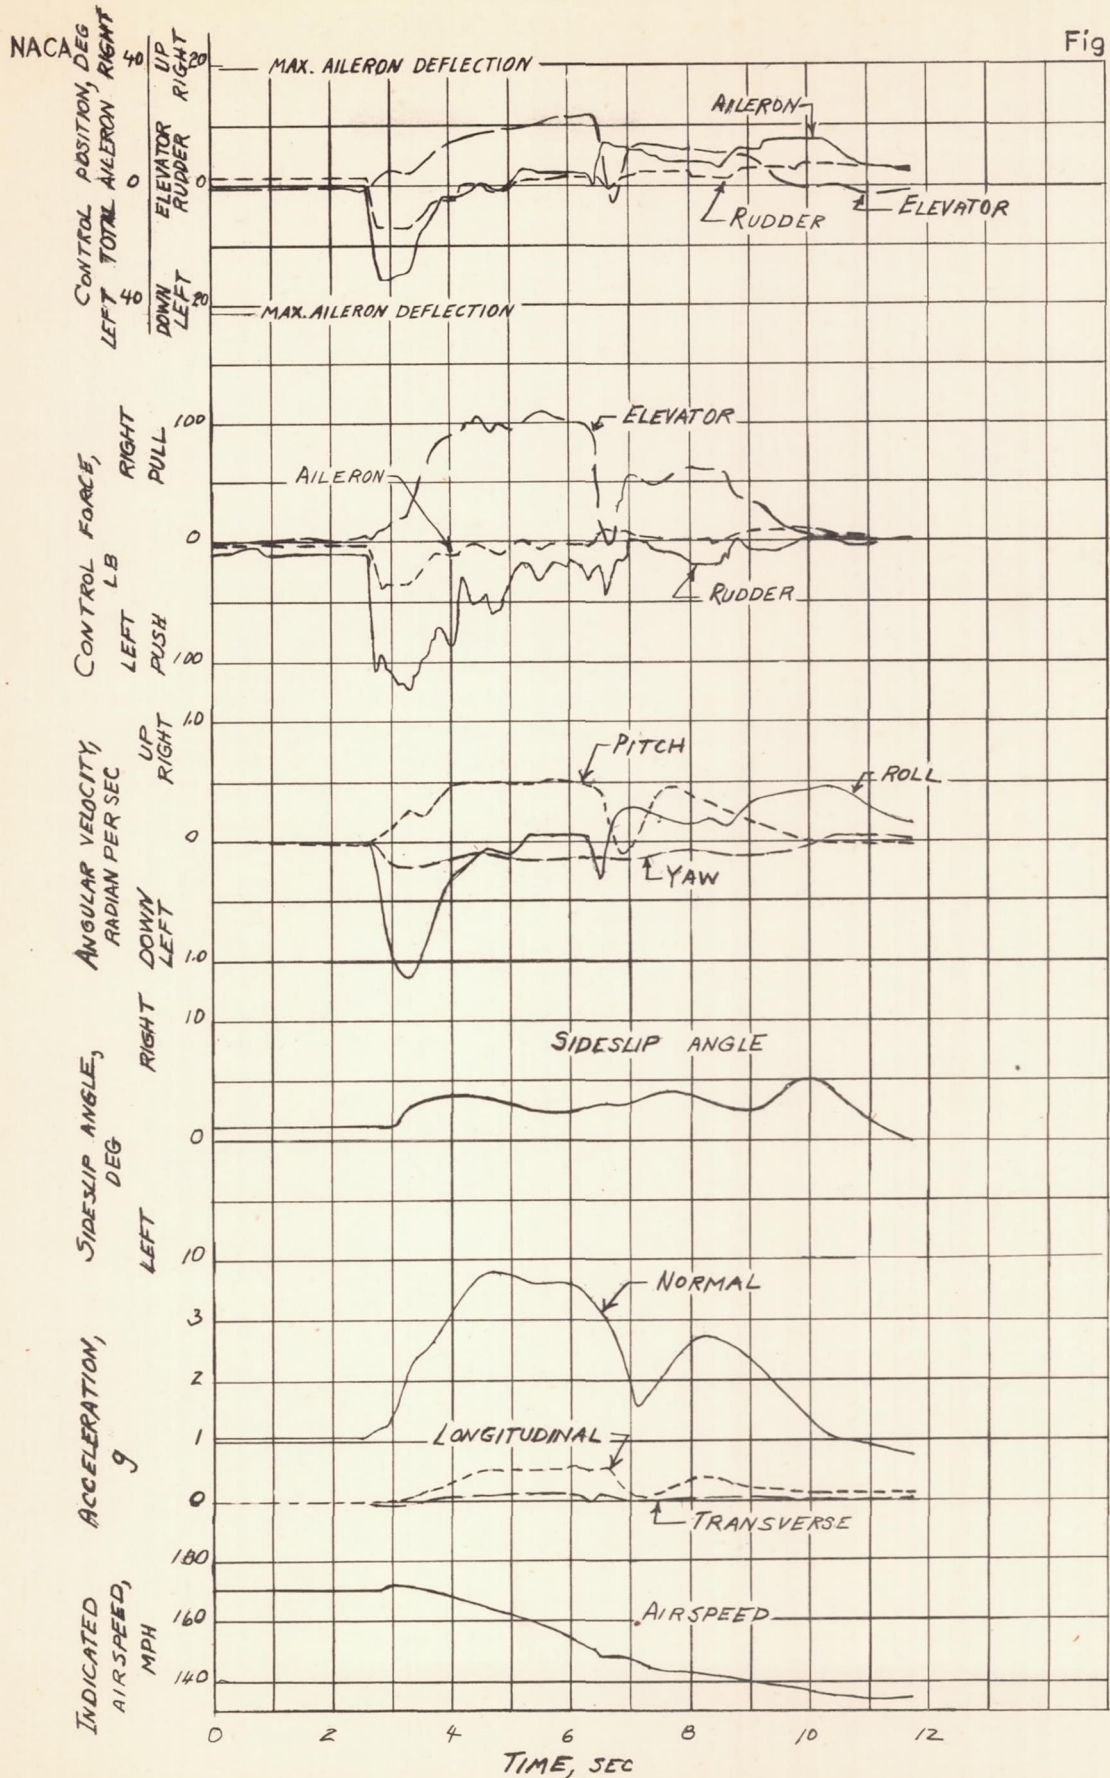 NACA
Fig
CONTROL POSITION, DEG
LEFT TOTAL AILERON RIGHT
40
0
40
DOWN ELEVATOR UP
LEFT RUDDER RIGHT
20
0
20
MAX. AILERON DEFLECTION
AILERON
RUDDER
ELEVATOR
MAX. AILERON DEFLECTION
CONTROL FORCE,
LB
LEFT RIGHT
PUSH PULL
100
0
100
ELEVATOR
AILERON
RUDDER
ANGULAR VELOCITY,
RADIAN PER SEC
DOWN UP
LEFT RIGHT
1.0
0
1.0
PITCH
ROLL
YAW
SIDESLIP ANGLE,
DEG
LEFT RIGHT
10
0
10
SIDESLIP ANGLE
ACCELERATION,
g
3
2
1
0
NORMAL
LONGITUDINAL
TRANSVERSE
INDICATED
AIRSPEED,
MPH
180
160
140
AIRSPEED
0 2 4 6 8 10 12
TIME, SEC